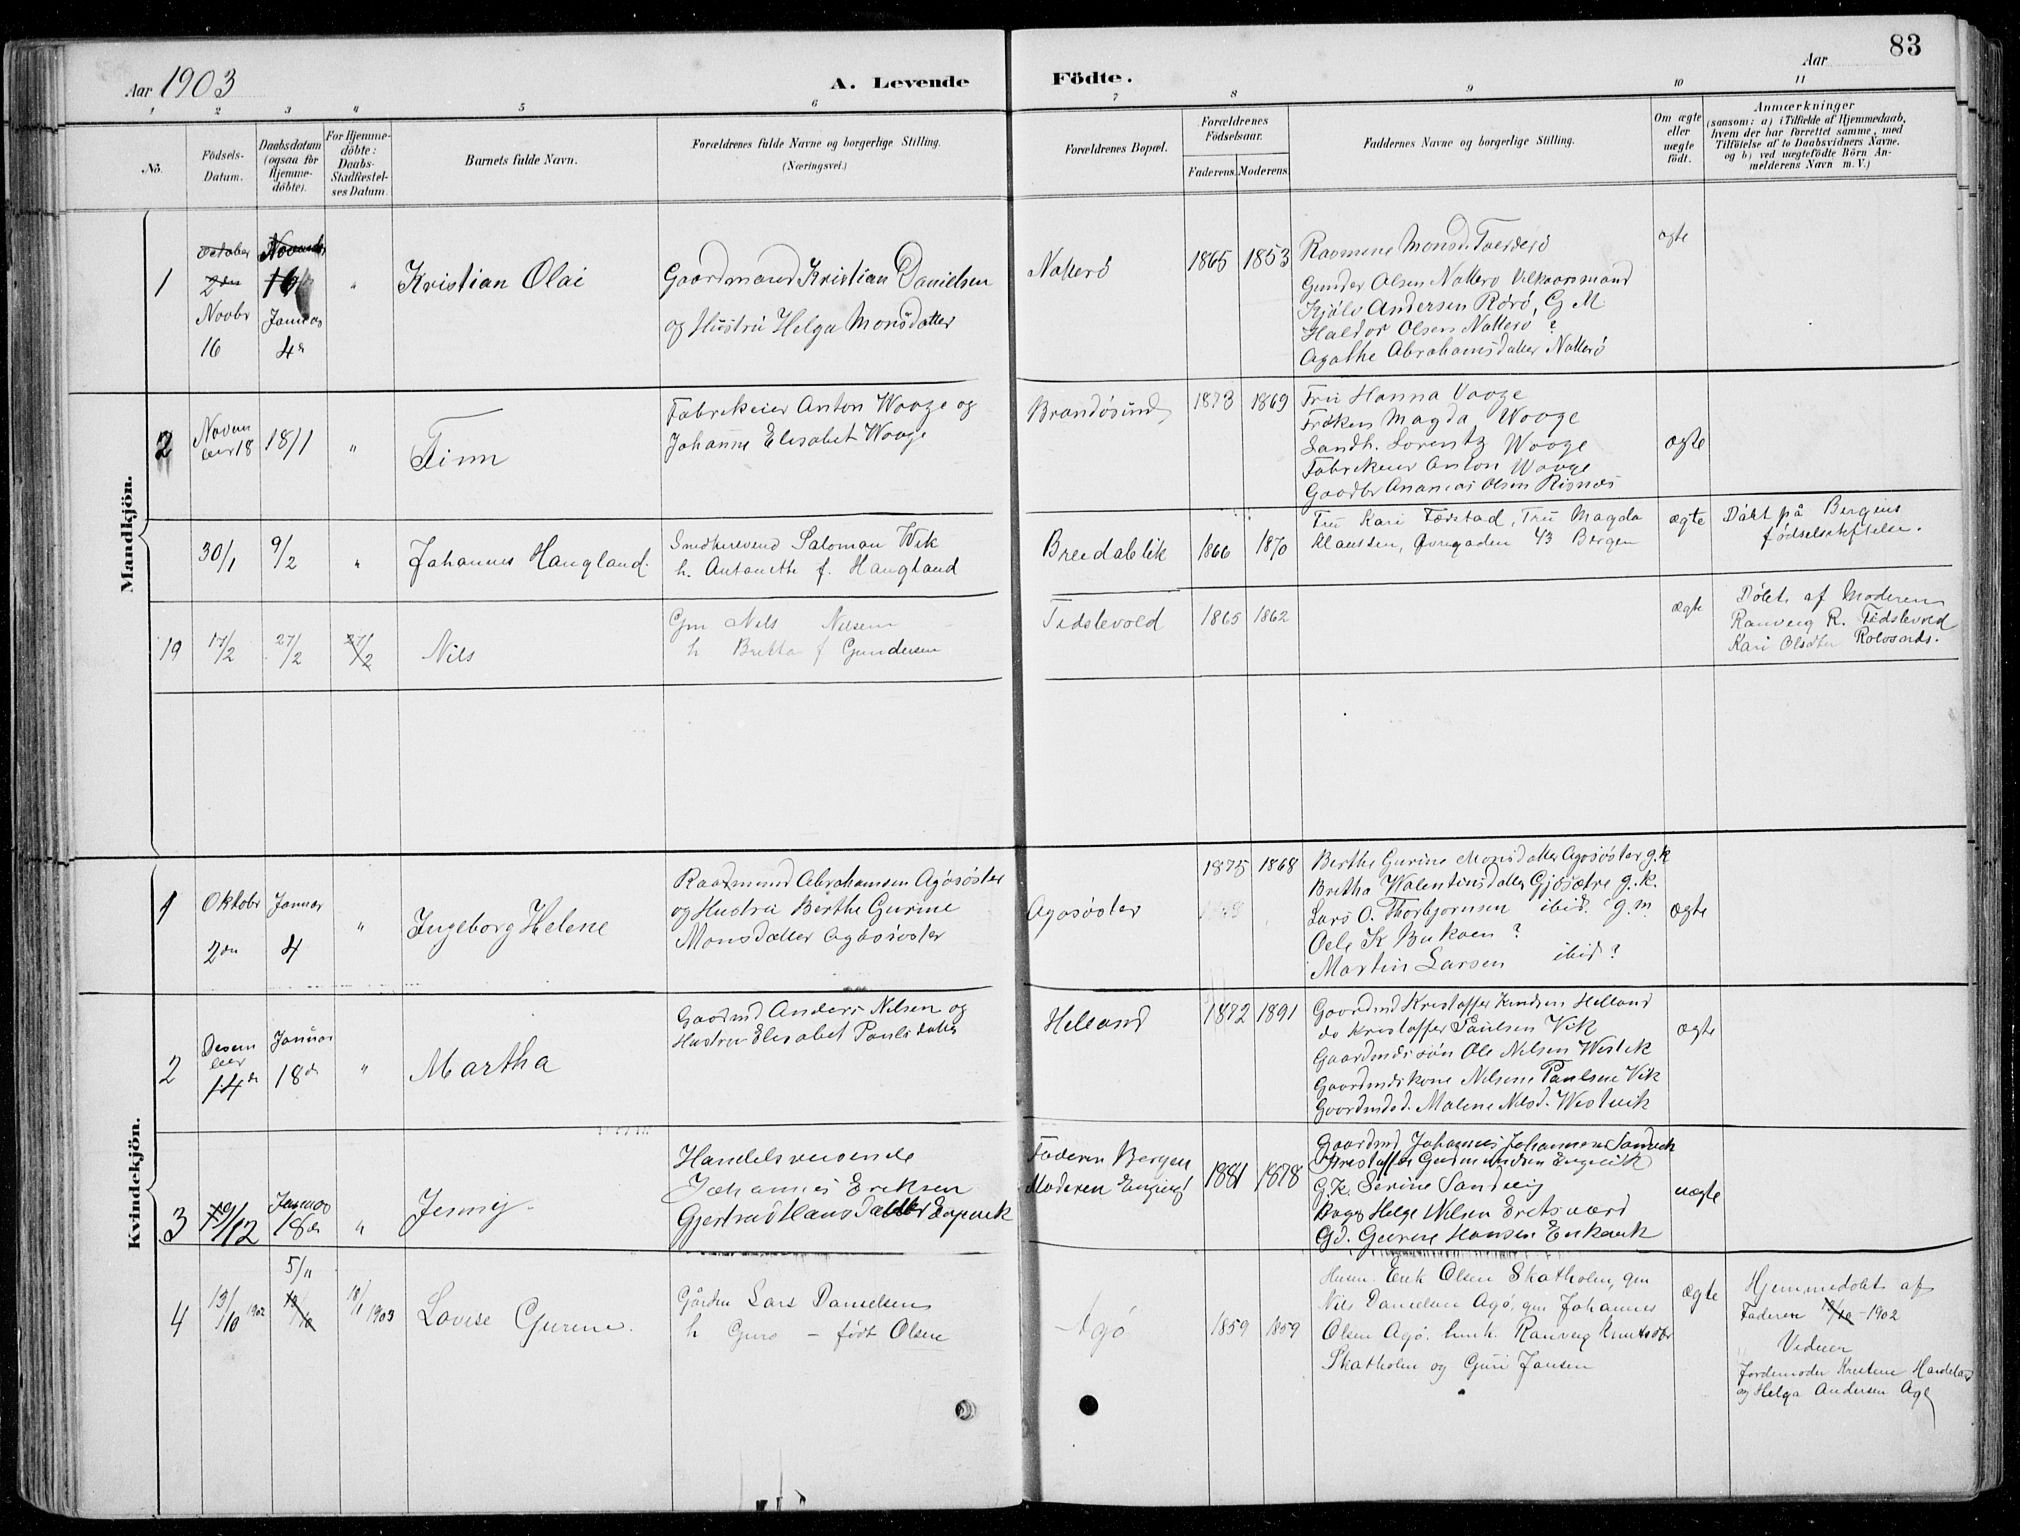 83
Aar 1903
A. Levende
Födte.
Aar
1 2 3 4 5 6 7 8 9 10 11
No.
Födsels-Datum.
Daabsdatum (ogsaa for Hjemmedöbte).
For Hjemmedöbte: Daabs-Stadfæstelses Datum.
Barnets fulde Navn.
Forældrenes fulde Navne og borgerlige Stilling.
(Næringsvei.)
Forældrenes Bopæl.
Forældrenes Födselsaar.
Faderens. Moderens.
Faddernes Navne og borgerlige Stilling.
Om ægte eller uægte födt.
Anmærkninger
(saasom: a) i Tilfælde af Hjemmedaab, hvem der har forrettet samme, med Tilföielse af to Daabsvidners Navne, og b) ved uægtefödte Börn Anmelderens Navn m. V.)
Mandkjön.
1
October
2den
Novbr
16
16
Januar
4de
"
Kristian Olai
Gaardmand Kristian Danielsen
og Hustru Helga Monsdatter
Natterö
1865
1853
Rasmine Monsd.
Gunder Olsen Natterö Vilkaarsmand
Kjölv Andersen Rörö, G M
Haldor Olsen Natterö ?
Agathe Abrahamsdatter Natterö
ægte
2
Novem
ber 18
18/1
"
Finn
Fabrikeier Anton Waage og
Johanne Elisabet Waage
Brandösund
1873
1869
Fru Hanna Waage
Fröken Magda Waage
Landh. Lorentz Waage
Fabrikeier Anton Waage
Gaardbr Ananias Olsen Risnes
ægte
30/1
9/2
"
Johannes Haugland.
Snedkersvend Salomon Wik
h. Antonette f. Haugland
Breidablik
1866
1870
Fru Kari Færstad, Fru Magda
Klaussen, Övregaden 43 Bergen
ægte
Döbt på Bergens
födselsstiftelse.
19
17/2
27/2
27/2
Nils
Gm Nils Nilsen
h Britta f Gundersen
Tidslevold
1865
1862
ægte
Döbt af Moderen
Ranveig R. Tidslevold
Kari Olsdtr
Kvindekjön.
1
Oktobr
2den
Januar
4
"
Ingeborg Helene
Raasmund Abrahamsen Agösöster
og Hustru Berthe Gurine
Monsdatter Agösöster
Agosöster
1875
1868
Berthe Gurine Monsdatter Agosöster g.k
Bretha Walentinsdatter Gjösætre g.k.
Lars O. Thorbjornsen ibid. g.m.
Oele K Bukaen ?
Martin Larsen ibid ?
ægte
2
Desem
ber
14de
Januar
18de
"
Martha
Gaardmd Anders Nilsen og
Hustru Elisabet Paulsdatter
Helland
1872
1891
Gaardmd Kristoffer Knudsen Helland
do Kristoffer Paulsen Vik
Gaardmds sön Ole Nilsen Westvik
Gaardmdskone Nilsine Paulsen Vik
Gaardmdsd. Malene Nilsd. Westvik
ægte
3
19/12
Januar
18de
"
Jenny
Handelsreisende
Johannes Eriksen
Gjertrud Hansdatter Engevik
Faderen Bergen
Moderen Engevig
1881
1878
Gaardmd Johannes Johannesen Sandvik
Kristoffer Gudmundsen Engevik
G.K. Serine Sandvig
Helge Nilsen Eretsvaard
Gd. Gurine Hansen Enkevik
uægte
4
13/10 1902
5/11
13/10
18/1 1903
Lovise Gurine.
Gårdm Lars Danielsen
h Guro – født Olsen
Agö
1859
1859
Husm. Erik Olsen Skatholm, gm
Nils Danielsen Agö, gm Johannes
Olsen Agö, husk. Ranveig Knutsdtr
Skatholm og Guri Jansen
ægte
Hjemmedöbt af
Faderen 13/10 - 1902
Vidner
Jordemoder Kristine Haadeland
og Helga Andersen Agö